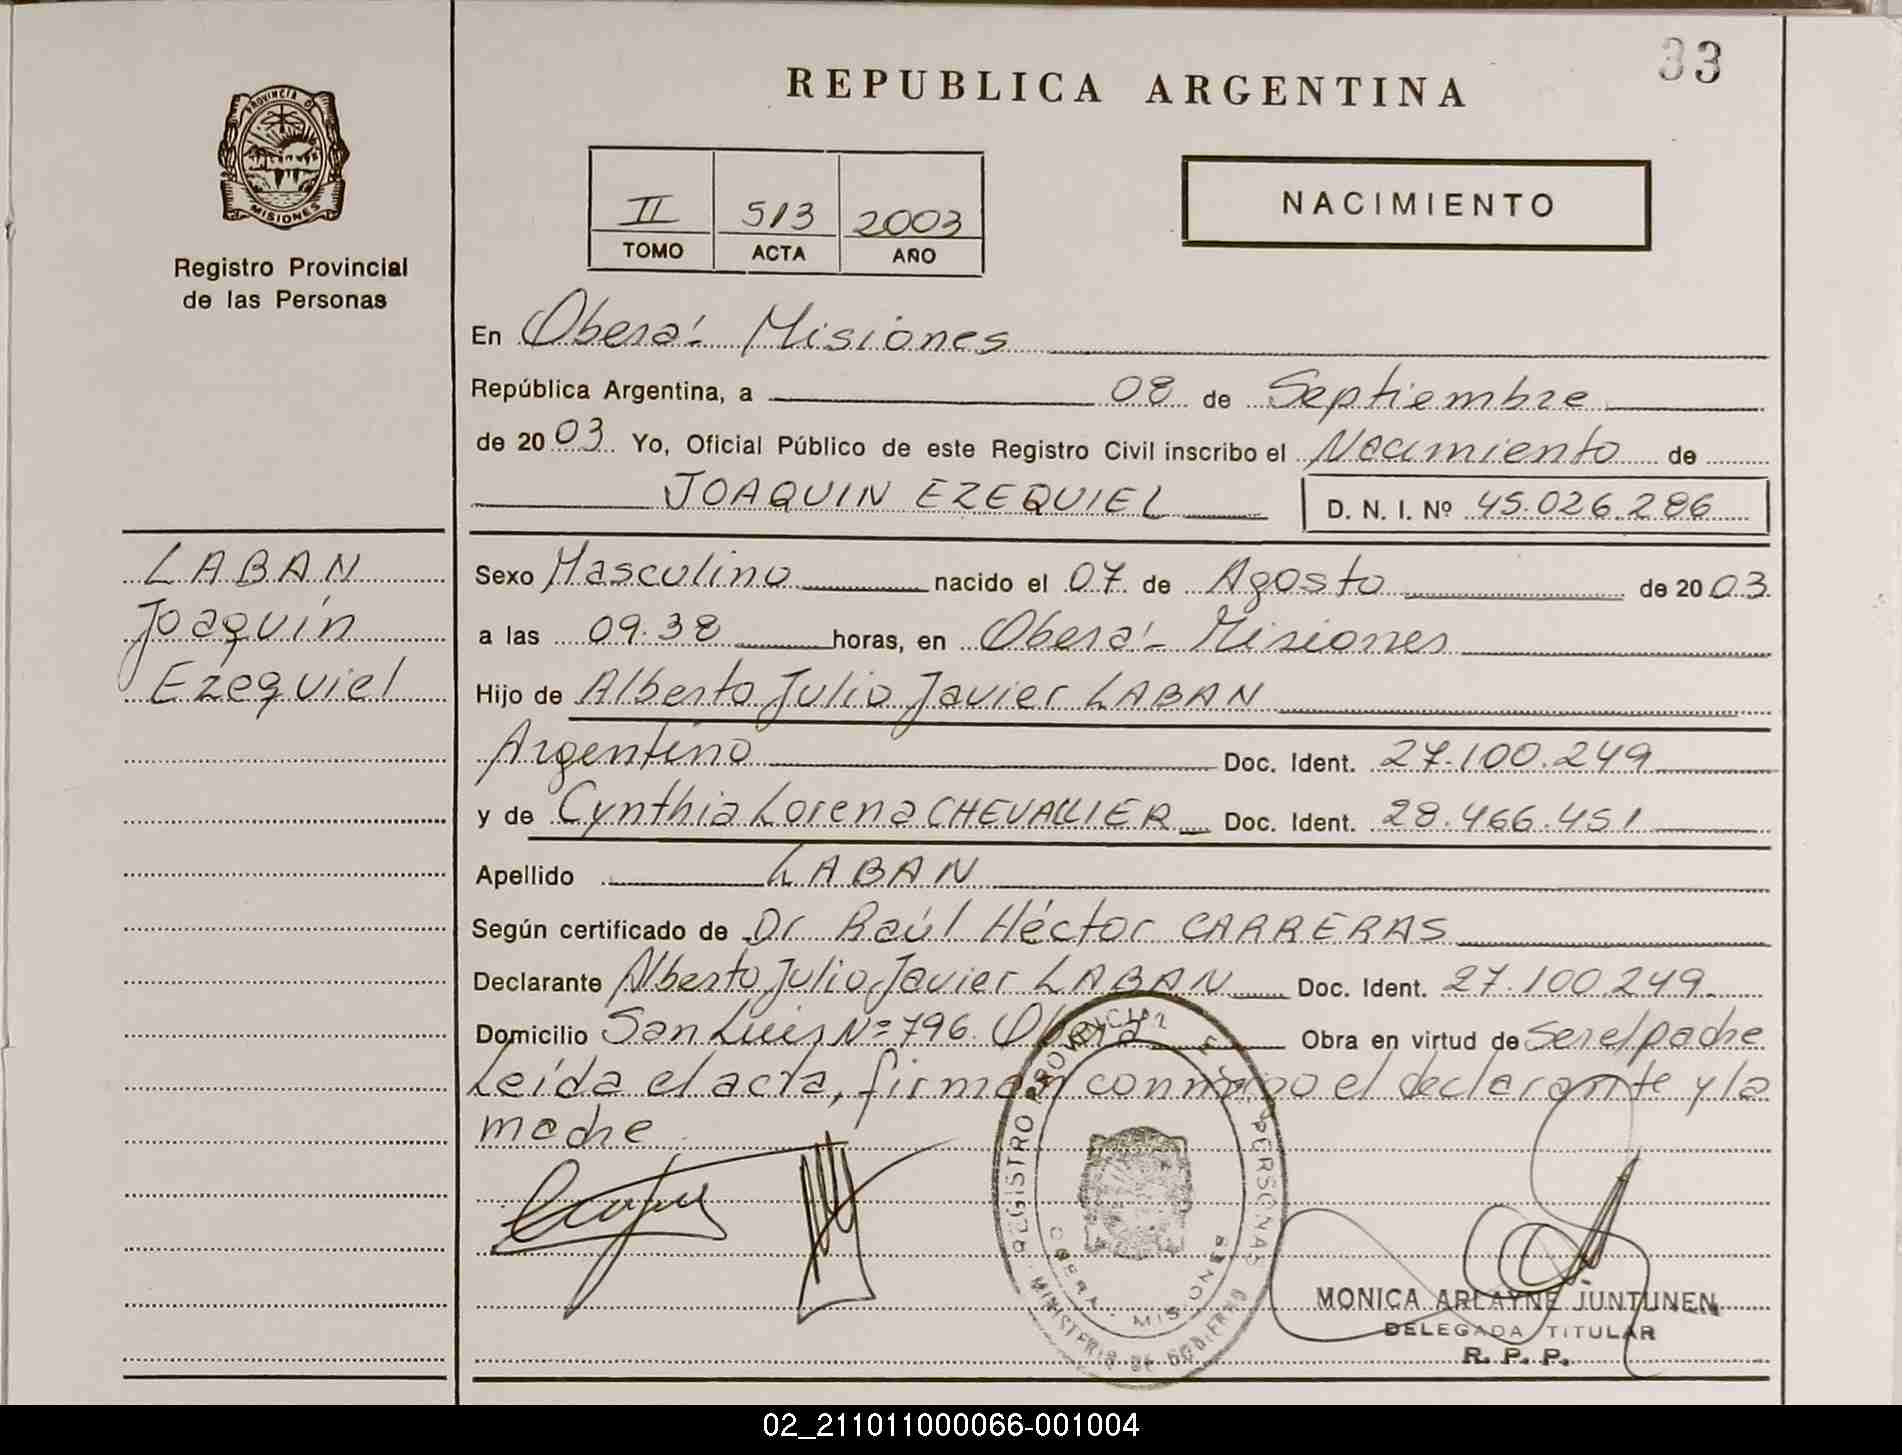 33
REPUBLICA ARGENTINA
PROVINCIA DE
MISIONES
Registro Provincial
de las Personas
II 513 2003
TOMO ACTA AÑO
NACIMIENTO
En Oberá - Misiones
República Argentina, a 08 de Septiembre
de 2003 Yo, Oficial Público de este Registro Civil inscribo el Nacimiento de
JOAQUIN EZEQUIEL D. N. I. Nº 45.026.286
LABAN
Joaquín
Ezequiel
Sexo Masculino nacido el 07 de Agosto de 2003
a las 09.38 horas, en Oberá - Misiones
Hijo de Alberto Julio Javier LABAN
Argentino Doc. Ident. 27.100.249
y de Cynthia Lorena CHEVALLIER Doc. Ident. 28.466.451
Apellido LABAN
Según certificado de Dr Raúl Héctor CARRERAS
Declarante Alberto Julio Javier LABAN Doc. Ident. 27.100.249
Domicilio San Luis Nº 796. Oberá Obra en virtud de Ser el padre
Leída el acta, firman conmigo el declarante y la
madre
REGISTRO PROVINCIAL PERSONAS
OBERA - MISIONES
MINISTERIO DE GOBIERNO
MONICA ARLAYNE JUNTUNEN
DELEGADA TITULAR
R. P. P.
02_211011000066-001004